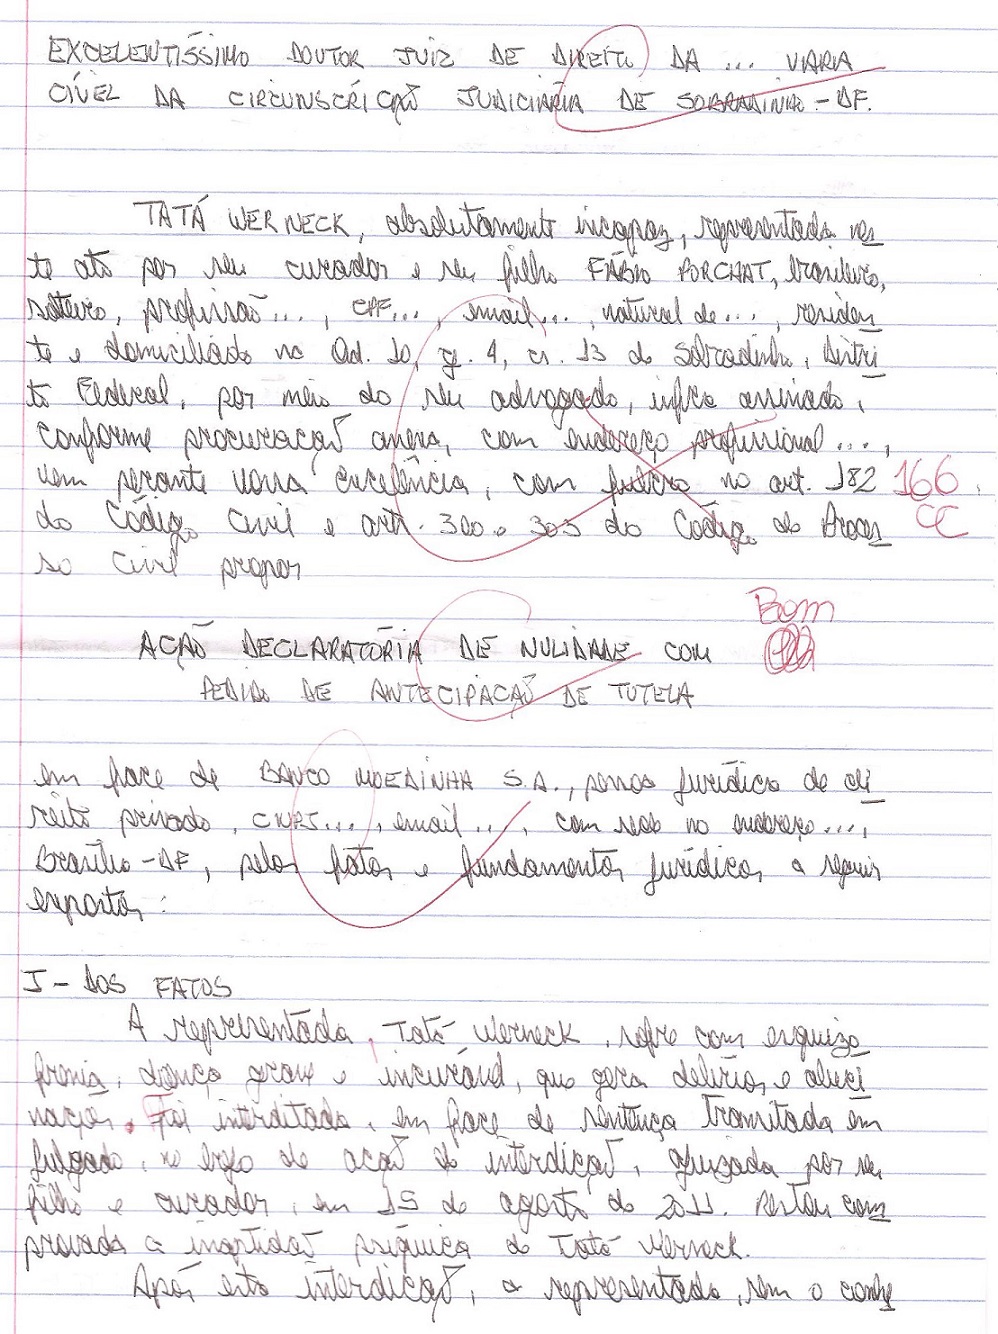 EXCELENTÍSSIMO DOUTOR JUIZ DE DIREITO DA ... VARA
CÍVEL DA CIRCUNSCRIÇÃO JUDICIÁRIA DE SOBRADINHO - DF.
TATÁ WERNECK, absolutamente incapaz, representada nes
te ato por seu curador e seu filho FÁBIO PORCHAT, brasileiro,
solteiro, profissão ..., CPF..., email..., natural de ..., residen
te e domiciliado na Qd. 10, cj. 4, cs. 13 de Sobradinho, Distri
to Federal, por meio do seu advogado, infra assinado,
conforme procuração anexa, com endereço profissional ...,
vem perante vossa excelência, com fulcro no art. 182 166
do Código Civil e art. 300 e 303 do Código de Proces CC
so Civil propor
Bom
AÇÃO DECLARATÓRIA DE NULIDADE COM
PEDIDO DE ANTECIPAÇÃO DE TUTELA
em face de BANCO MOEDINHA S.A., pessoa jurídica de di
reito privado, CNPJ..., email..., com sede no endereço...,
Brasília - DF, pelos fatos e fundamentos jurídicos a seguir
expostos:
I - DOS FATOS
A representada, Tatá Werneck, sofre com esquizo
frenia, doença grave e incurável, que gera delírios e aluci
nações. Foi interditada, em face de sentença tramitada em
julgado, no bojo de ação de interdição, ajuizada por seu
filho e curador, em 15 de agosto de 2011. Restou com
provada a inaptidão psíquica de Tatá Werneck.
Após esta interdição, a representada, sem o conhe